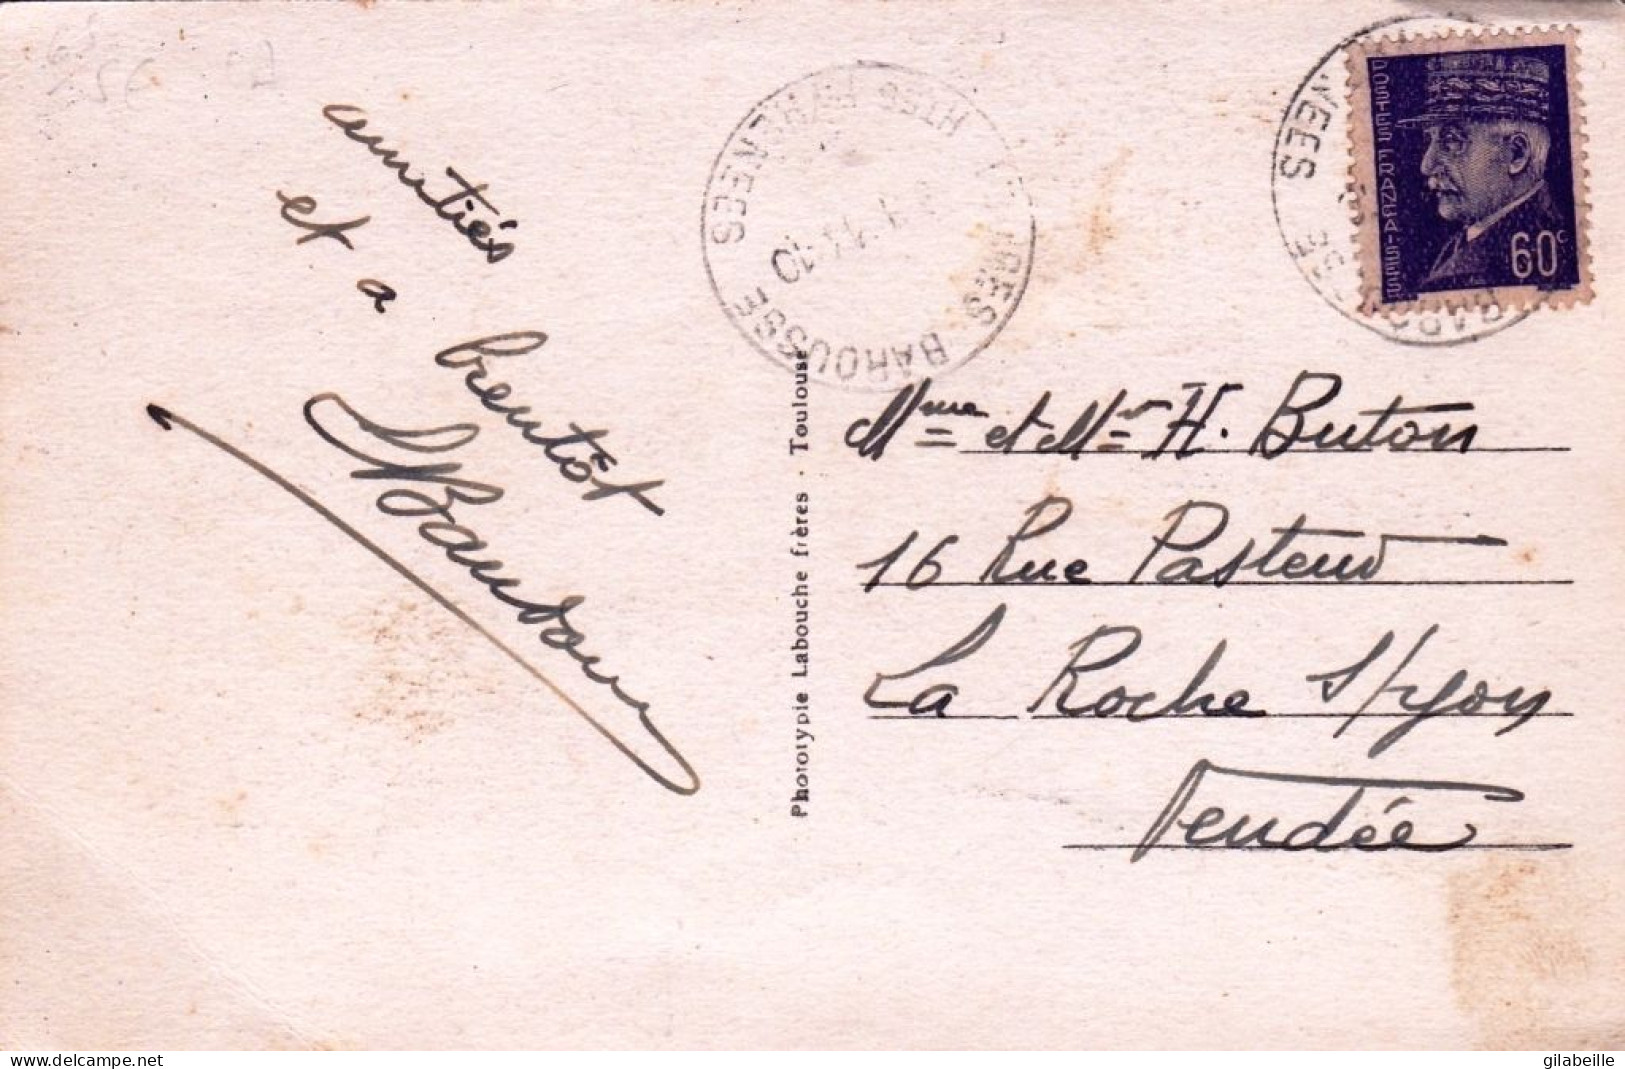 amitiés
et a
bientôt
HTES PYRENEES
BAROUSSE
10
NEES
POSTES FRANÇAISES
60c
Mme et Mr H. Buton
16 Rue Pasteur
La Roche s/yon
Vendée
Phototypie Labouche frères - Toulouse
www.delcampe.net
gilabeille